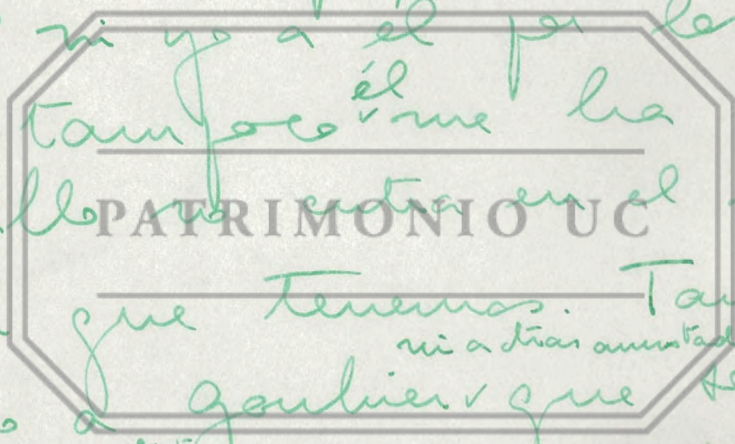 ni yo a él por le
él
tampoco me ha
llo no entra en el
PATRIMONIO UC
que tenemos. Tam
ni a otras amistad
a que